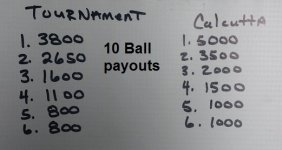 TOURNAMENT
1. 3800
2. 2650
3. 1600
4. 1100
5. 800
6. 800
10 Ball
payouts
Calcutta
1. 5000
2. 3500
3. 2000
4. 1500
5. 1000
6. 1000